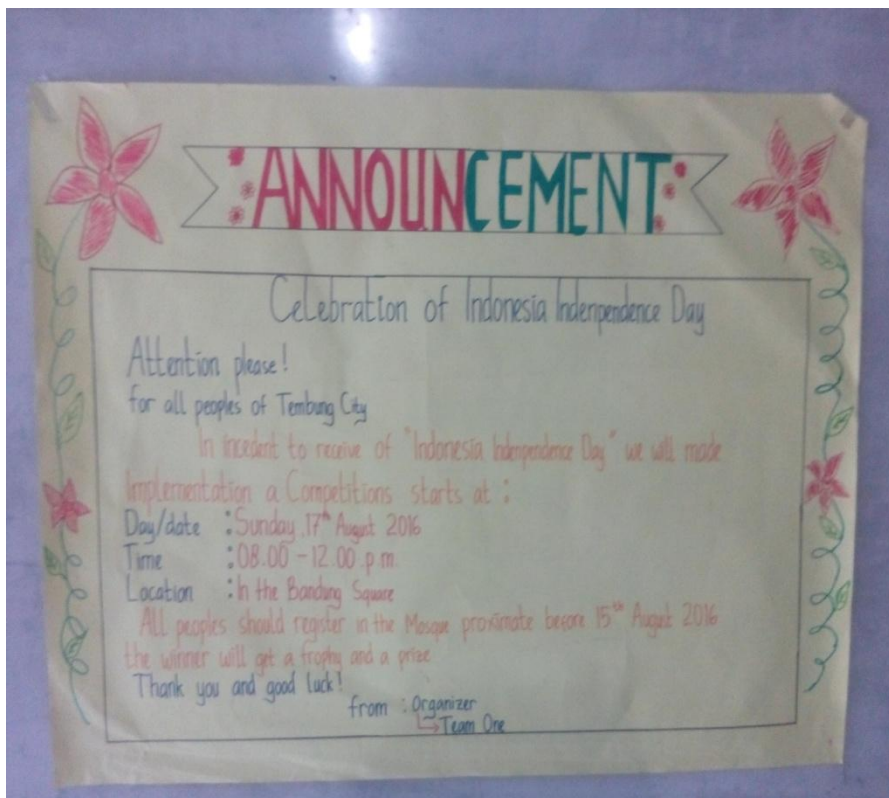 ANNOUNCEMENT
Celebration of Indonesia Indenpendence Day
Attention please!
for all peoples of Tembung City
In incedent to receive of "Indonesia Indenpendence Day" we will made
Implementation a Competitions starts at :
Day/date : Sunday, 17th August 2016
Time : 08.00 - 12.00 p.m.
Location : In the Bandung Square
All peoples should register in the Mosque proximate before 15th August 2016
the winner will get a trophy and a prize
Thank you and good luck!
from : Organizer
Team One